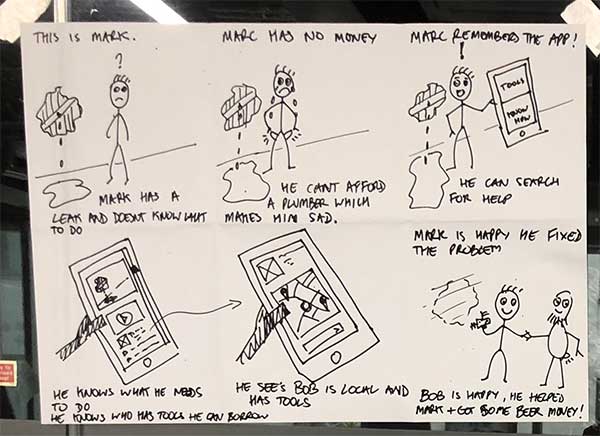 THIS IS MARK.
?
MARK HAS A
LEAK AND DOESNT KNOW WHAT
TO DO
MARC HAS NO MONEY
HE CANT AFFORD
A PLUMBER WHICH
MAKES HIM SAD.
MARC REMEMBERS THE APP!
!
TOOLS
KNOW
HOW
HE CAN SEARCH
FOR HELP
HE KNOWS WHAT HE NEEDS
TO DO
HE KNOWS WHO HAS TOOLS HE CAN BORROW
HE SEE'S BOB IS LOCAL AND
HAS TOOLS
MARK IS HAPPY HE FIXED
THE PROBLEM
BOB IS HAPPY, HE HELPED
MARK + GOT SOME BEER MONEY!